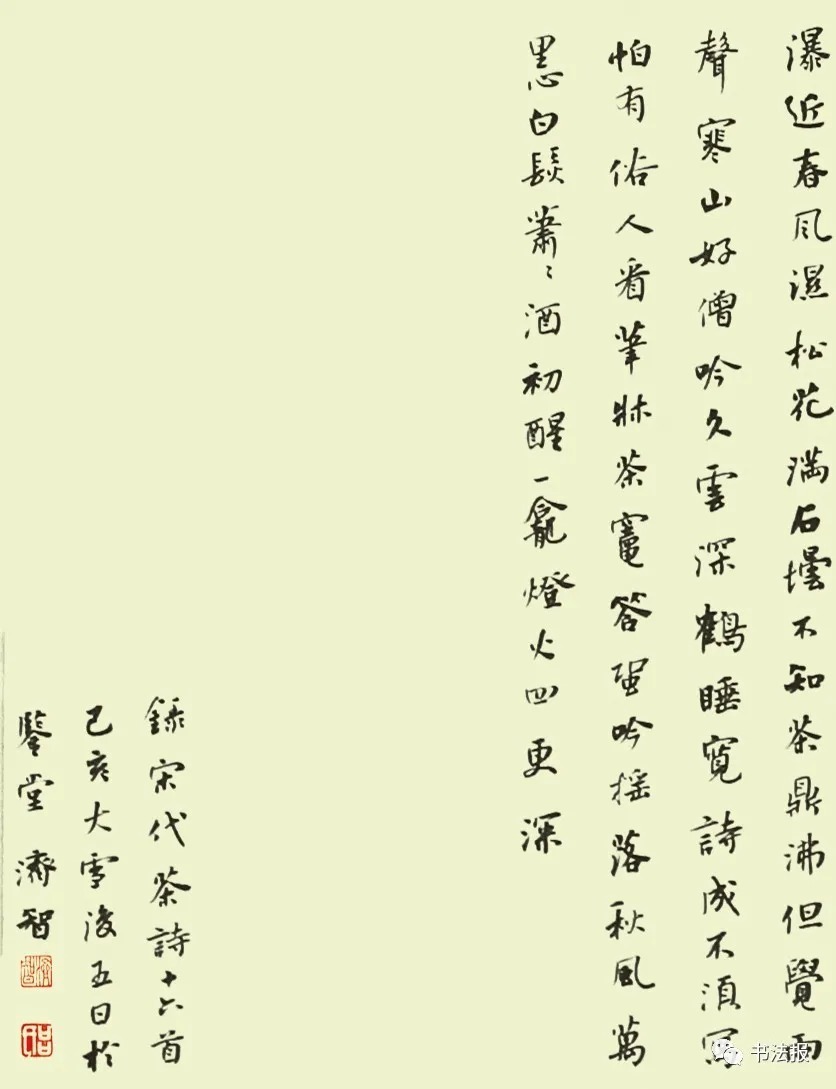 瀑近春風濕松花滿石壇不知茶鼎沸但覺雨
聲寒山好僧吟久雲深鶴睡寬詩成不須寫
怕有俗人看筆牀茶竈答蛩吟搖落秋風萬
里心白髮蕭〻酒初醒一龕燈火四更深
錄宋代茶詩十六首
己亥大雪後五日於
鑒堂濟智
书法报